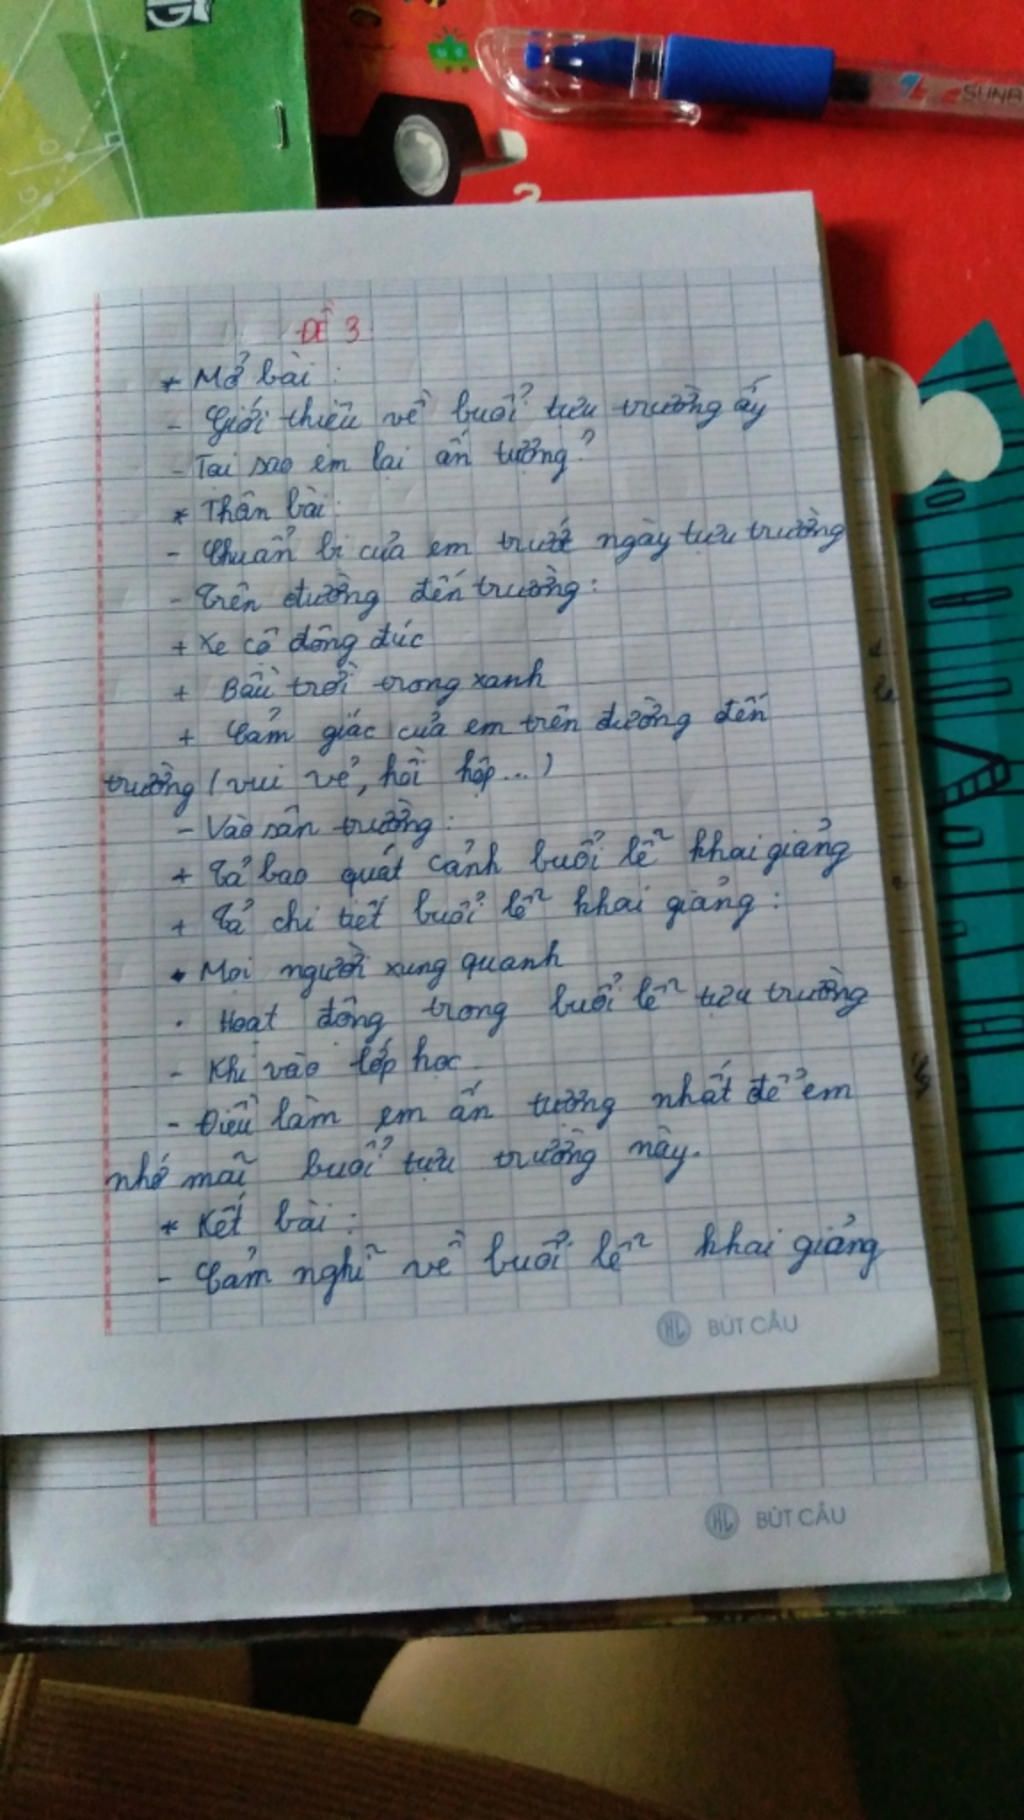 SUNA
ĐỀ 3
* Mở bài :
- Giới thiệu về buổi tựu trường ấy
- Tại sao em lại ấn tượng?
* Thân bài:
- Chuẩn bị của em trước ngày tựu trường
- Trên đường đến trường:
+ Xe cộ đông đúc
+ Bầu trời trong xanh
+ Cảm giác của em trên đường đến
trường (vui vẻ, hồi hộp...)
- Vào sân trường:
+ Tả bao quát cảnh buổi lễ khai giảng
+ Tả chi tiết buổi lễ khai giảng :
• Mọi người xung quanh
• Hoạt động trong buổi lễ tựu trường
- Khi vào lớp học
- Điều làm em ấn tượng nhất để em
nhớ mãi buổi tựu trường này.
* Kết bài :
- Cảm nghĩ về buổi lễ khai giảng
HL BÚT CẦU
HL BÚT CẦU